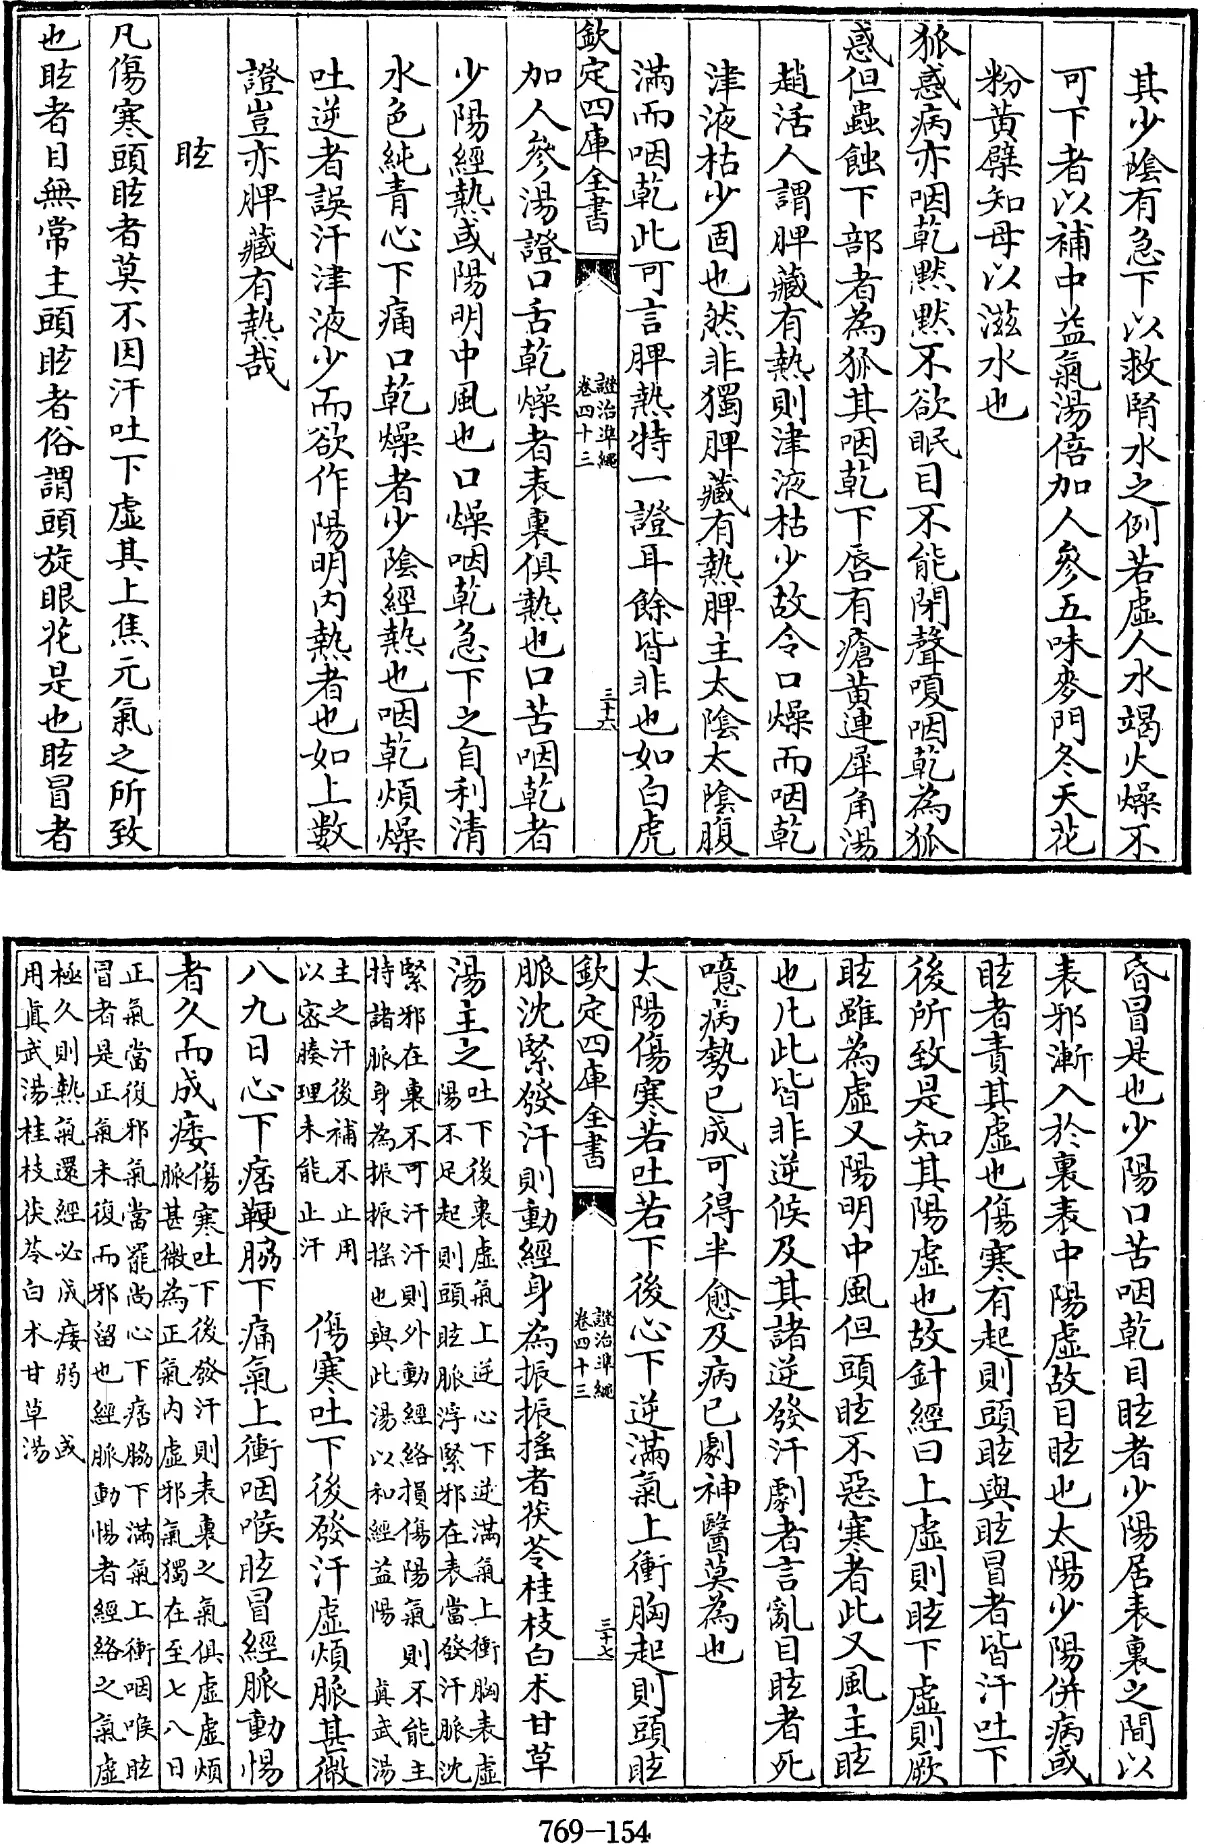 其少陰有急下以救腎水之例若虛人水竭火燥不
可下者以補中益氣湯倍加人參五味麥門冬天花
粉黄蘖知母以滋水也
狐惑病亦咽乾黙黙不欲眠目不能閉聲嗄咽乾為狐
惑但蟲蝕下部者為狐其咽乾下唇有瘡黄連犀角湯
趙活人謂脾藏有熱則津液枯少故令口燥而咽乾
津液枯少固也然非獨脾藏有熱脾主太陰太陰腹
滿而咽乾此可言脾熱特一證耳餘皆非也如白虎
欽定四庫全書
證治準繩
卷四十三
三十六
加人參湯證口舌乾燥者表裏俱熱也口苦咽乾者
少陽經熱或陽明中風也口燥咽乾急下之自利清
水色純青心下痛口乾燥者少陰經熱也咽乾煩燥
吐逆者誤汗津液少而欲作陽明内熱者也如上數
證豈亦脾藏有熱哉
眩
凡傷寒頭眩者莫不因汗吐下虛其上焦元氣之所致
也眩者目無常主頭眩者俗謂頭旋眼花是也眩冒者
昏冒是也少陽口苦咽乾目眩者少陽居表裏之間以
表邪漸入於裏表中陽虛故目眩也太陽少陽併病或
眩者責其虛也傷寒有起則頭眩與眩冒者皆汗吐下
後所致是知其陽虛也故針經曰上虛則眩下虛則厥
眩雖為虛又陽明中風但頭眩不惡寒者此又風主眩
也凡此皆非逆候及其諸逆發汗劇者言亂目眩者死
噫病勢已成可得半愈及病已劇神醫莫為也
太陽傷寒若吐若下後心下逆滿氣上衝胸起則頭眩
欽定四庫全書
證治準繩
卷四十三
三十七
脈沈緊發汗則動經身為振振搖者茯苓桂枝白朮甘草
湯主之吐下後裏虛氣上逆心下逆滿氣上衝胸表虛
陽不足起則頭眩脈浮緊邪在表當發汗脈沈
緊邪在裏不可汗汗則外動經絡損傷陽氣則不能主
持諸脈身為振振搖也與此湯以和經益陽　真武湯
主之汗後補不止用
以密腠理未能止汗　傷寒吐下後發汗虛煩脈甚微
八九日心下痞鞕脇下痛氣上衝咽喉眩冒經脈動惕
者久而成痿傷寒吐下後發汗則表裏之氣俱虛虛煩
脈甚微為正氣内虛邪氣獨在至七八日
正氣當復邪氣當罷尚心下痞脇下滿氣上衝咽喉眩
冒者是正氣未復而邪留也經脈動惕者經絡之氣虛
極久則熱氣還經必成痿弱　或
用真武湯桂枝茯苓白朮甘草湯
769-154